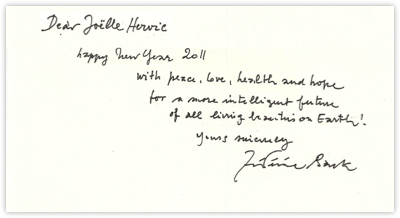 Dear Joëlle Hervic
happy New Year 2011
with peace, love, health and hope
for a more intelligent future
of all living beauties on Earth!
Yours sincerely